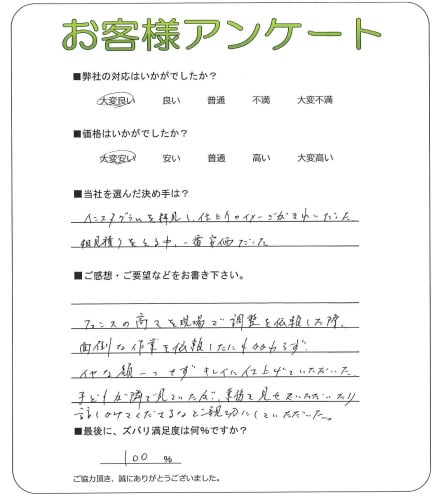 お客様アンケート
■弊社の対応はいかがでしたか？
大変良い 良い 普通 不満 大変不満
■価格はいかがでしたか？
大変安い 安い 普通 高い 大変高い
■当社を選んだ決め手は？
インスタグラムを拝見し、仕上りのイメージがきれいだった。
相見積りをとる中、一番安価だった
■ご感想・ご要望などをお書き下さい。
フェンスの高さを現場で調整を依頼した際、
面倒な作業を依頼したにもかかわらず
イヤな顔一つせずキレイに仕上げていただいた。
子どもが隣で見ていたが、 見せていただいたり
話しかけてくださるなど親切にしていただいた。
■最後に、ズバリ満足度は何％ですか？
100 ％
ご協力頂き、誠にありがとうございました。